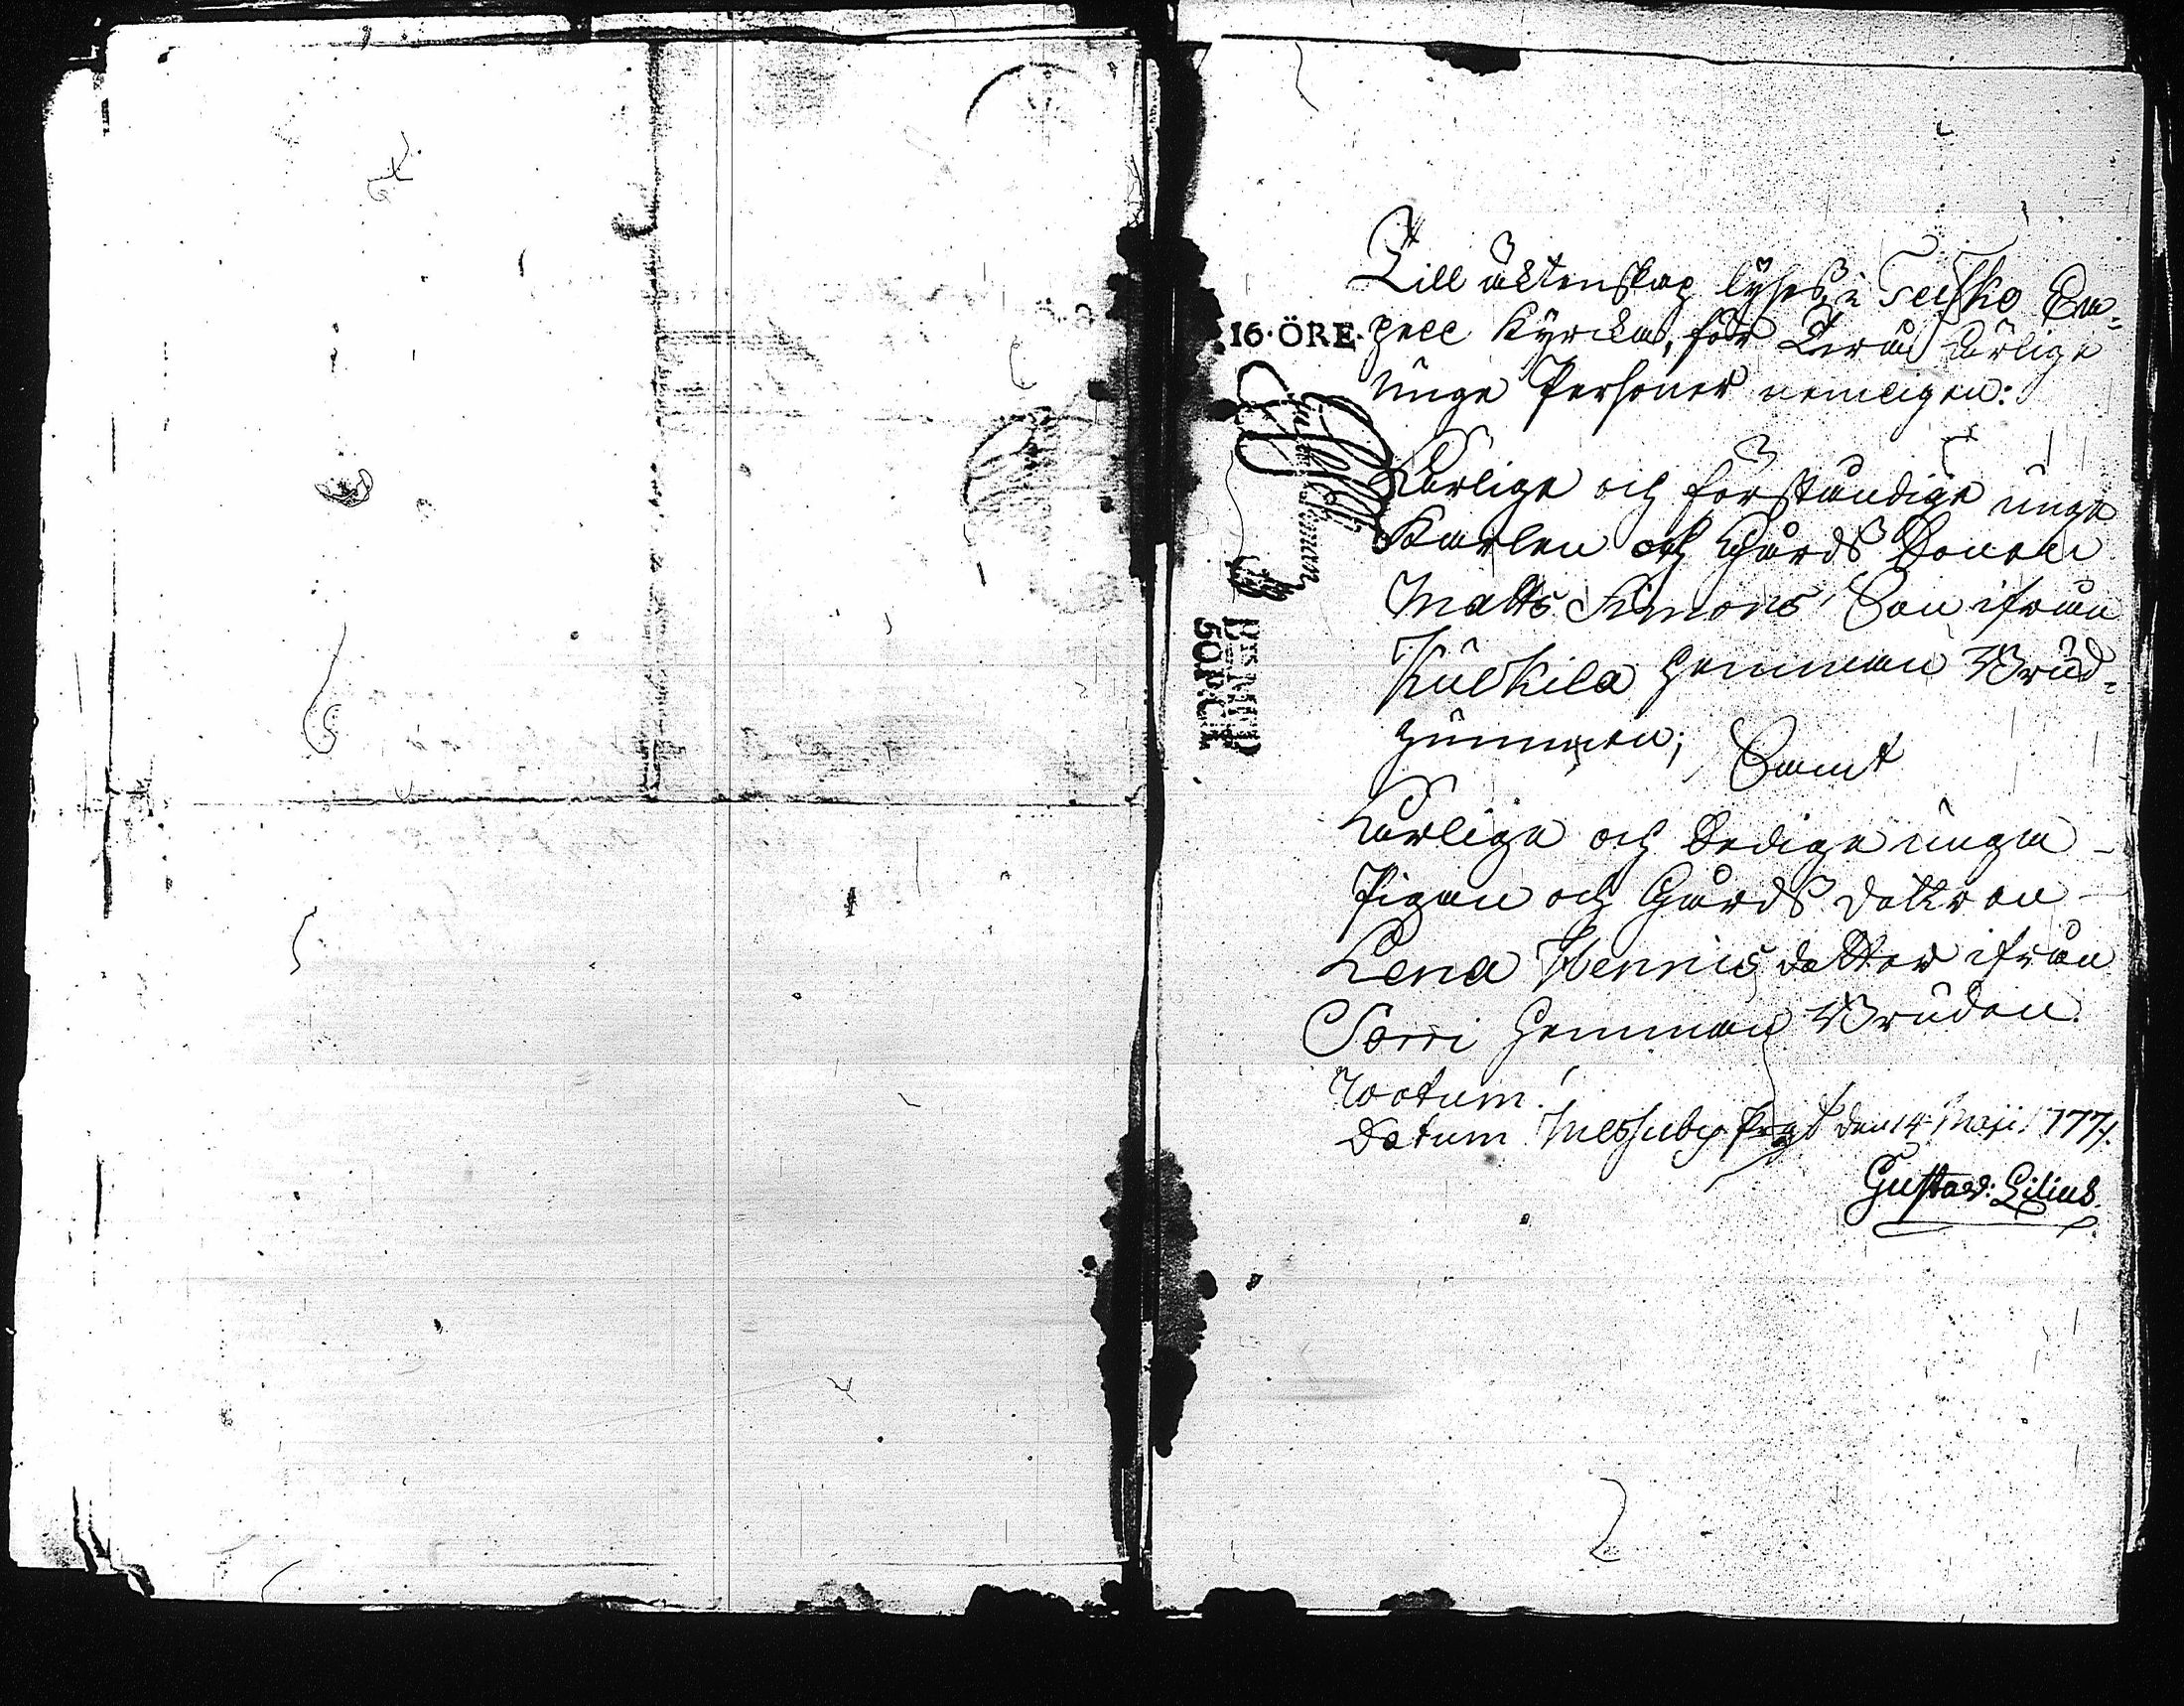 Till äktenskap lyses i Teisko Ca-
16·ÖRE. pell Kyrcka, för Twenne ärlige
unge Personer nemligen:
Ärlige och förståndige unge
Karlen och Gårds Sonen
Matts Simons Son ifrån
Kulkila hemman Brud-
gummen; Samt
Ärliga och Sediga unga
Pigan och Gårds dottren
Lena Henrics dotter ifrån
Sorri hemman Bruden.
Datum Messuby den 14 Maji 1774.
Gustav: Lilius.